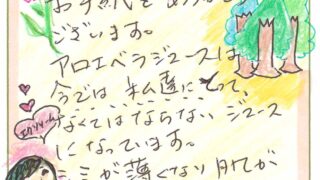 お手紙をありがとう
ございます。
アロエベラジュースは
今では私達にとって、
なくてはならないジュース
になっています。
シミが薄くなり肌が